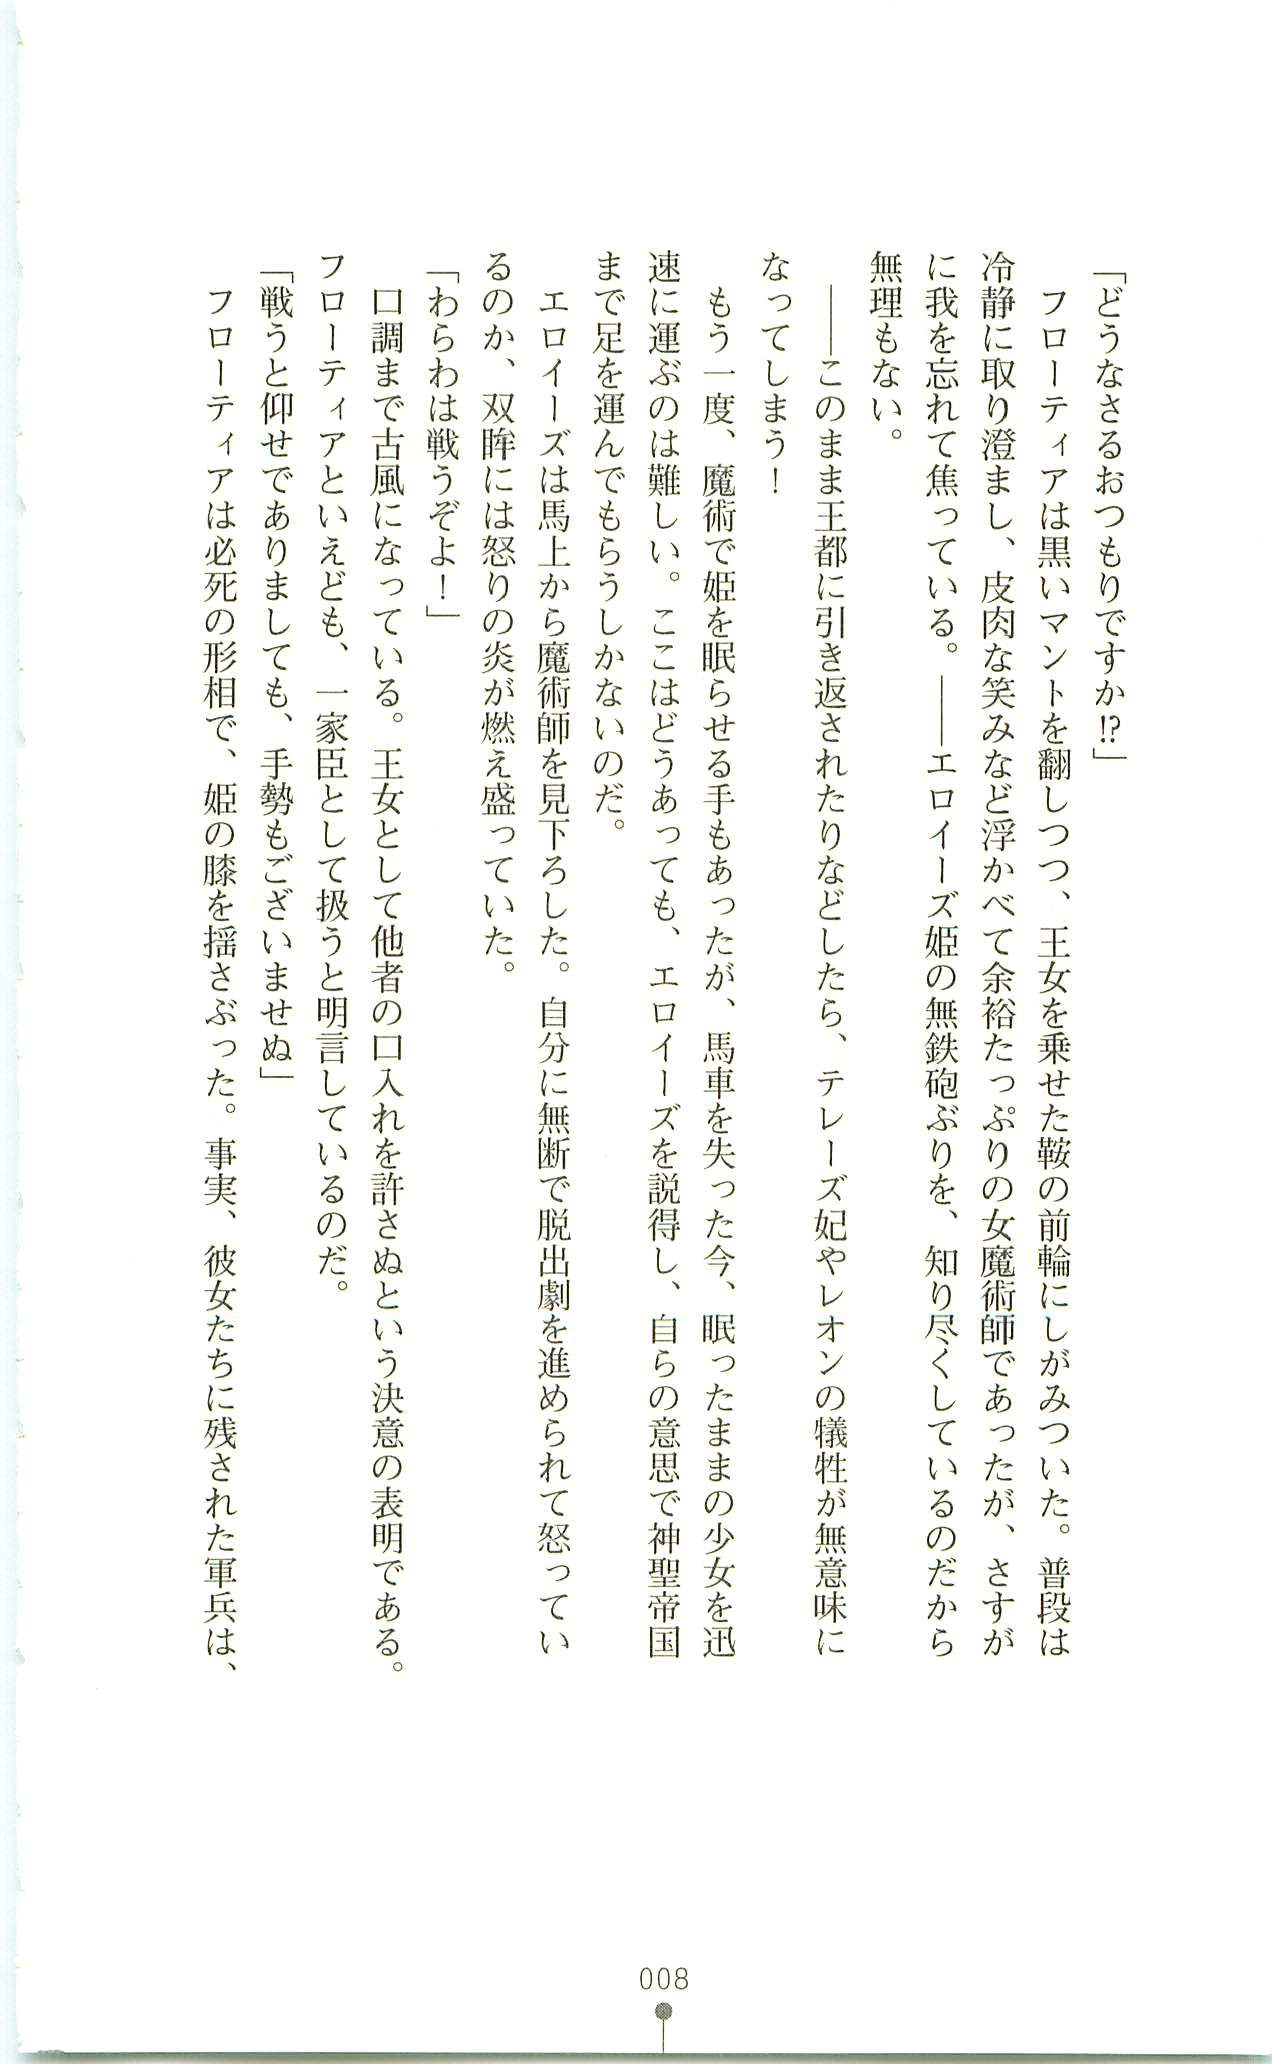 「どうなさるおつもりですか!?」
　フローティアは黒いマントを翻しつつ、王女を乗せた鞍の前輪にしがみついた。普段は
冷静に取り澄まし、皮肉な笑みなど浮かべて余裕たっぷりの女魔術師であったが、さすが
に我を忘れて焦っている。――エロイーズ姫の無鉄砲ぶりを、知り尽くしているのだから
無理もない。
　――このまま王都に引き返されたりなどしたら、テレーズ妃やレオンの犠牲が無意味に
なってしまう！
　もう一度、魔術で姫を眠らせる手もあったが、馬車を失った今、眠ったままの少女を迅
速に運ぶのは難しい。ここはどうあっても、エロイーズを説得し、自らの意思で神聖帝国
まで足を運んでもらうしかないのだ。
　エロイーズは馬上から魔術師を見下ろした。自分に無断で脱出劇を進められて怒ってい
るのか、双眸には怒りの炎が燃え盛っていた。
「わらわは戦うぞよ！」
　口調まで古風になっている。王女として他者の口入れを許さぬという決意の表明である。
フローティアといえども、一家臣として扱うと明言しているのだ。
「戦うと仰せでありましても、手勢もございませぬ」
　フローティアは必死の形相で、姫の膝を揺さぶった。事実、彼女たちに残された軍兵は、
008